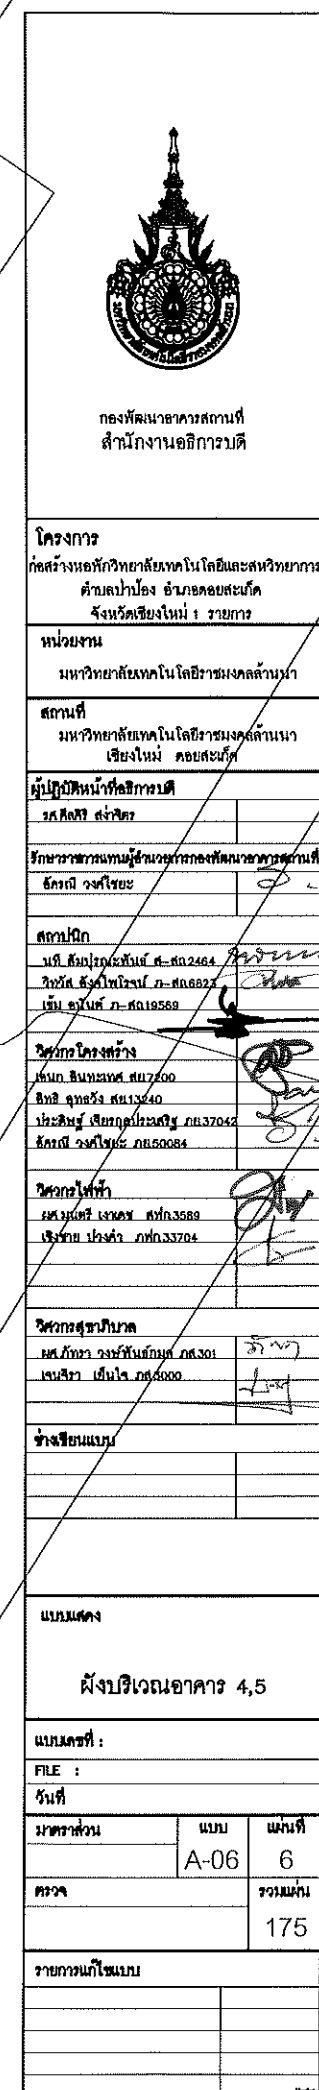 มหาวิทยาลัยเทคโนโลยีราชมงคลล้านนา
กองพัฒนาอาคารสถานที่
สำนักงานอธิการบดี
โครงการ
ก่อสร้างหอพักวิทยาลัยเทคโนโลยีและสหวิทยาการ
ตำบลป่าป้อง อำเภอดอยสะเก็ด
จังหวัดเชียงใหม่ 1 รายการ
หน่วยงาน
มหาวิทยาลัยเทคโนโลยีราชมงคลล้านนา
สถานที่
มหาวิทยาลัยเทคโนโลยีราชมงคลล้านนา
เชียงใหม่ ดอยสะเก็ด
ผู้ปฏิบัติหน้าที่อธิการบดี
รศ.ศีลศิริ สง่าจิตร
รักษาราชการแทนผู้อำนวยการกองพัฒนาอาคารสถานที่
อัครณี วงศ์ไชยะ
สถาปนิก
นที สัมปุรณะพันธ์ ส-สถ2464
วิทวัส ภ-สถ6823
เข็ม อนันต์ ภ-สถ19589
วิศวกรโครงสร้าง
เอนก อินทะเทศ สย7200
อิทธิ อุทธวัง สย13240
ประดิษฐ์ เจียรกุลประเสริฐ ภย37042
อัครณี วงศ์ไชยะ ภย50084
วิศวกรไฟฟ้า
ผศ.มนตรี เงาเดช สฟก3589
เชิงชาย ปวงคำ ภฟก33704
วิศวกรสุขาภิบาล
ผศ.ภัทรา วงษ์พันธ์กมล ภส301
เจนจิรา เย็นใจ ภส3000
ช่างเขียนแบบ
แบบแสดง
ผังบริเวณอาคาร 4,5
แบบเลขที่ :
FILE :
วันที่
มาตราส่วน แบบ แผ่นที่
A-06 6
ตรวจ รวมแผ่น
175
รายการแก้ไขแบบ